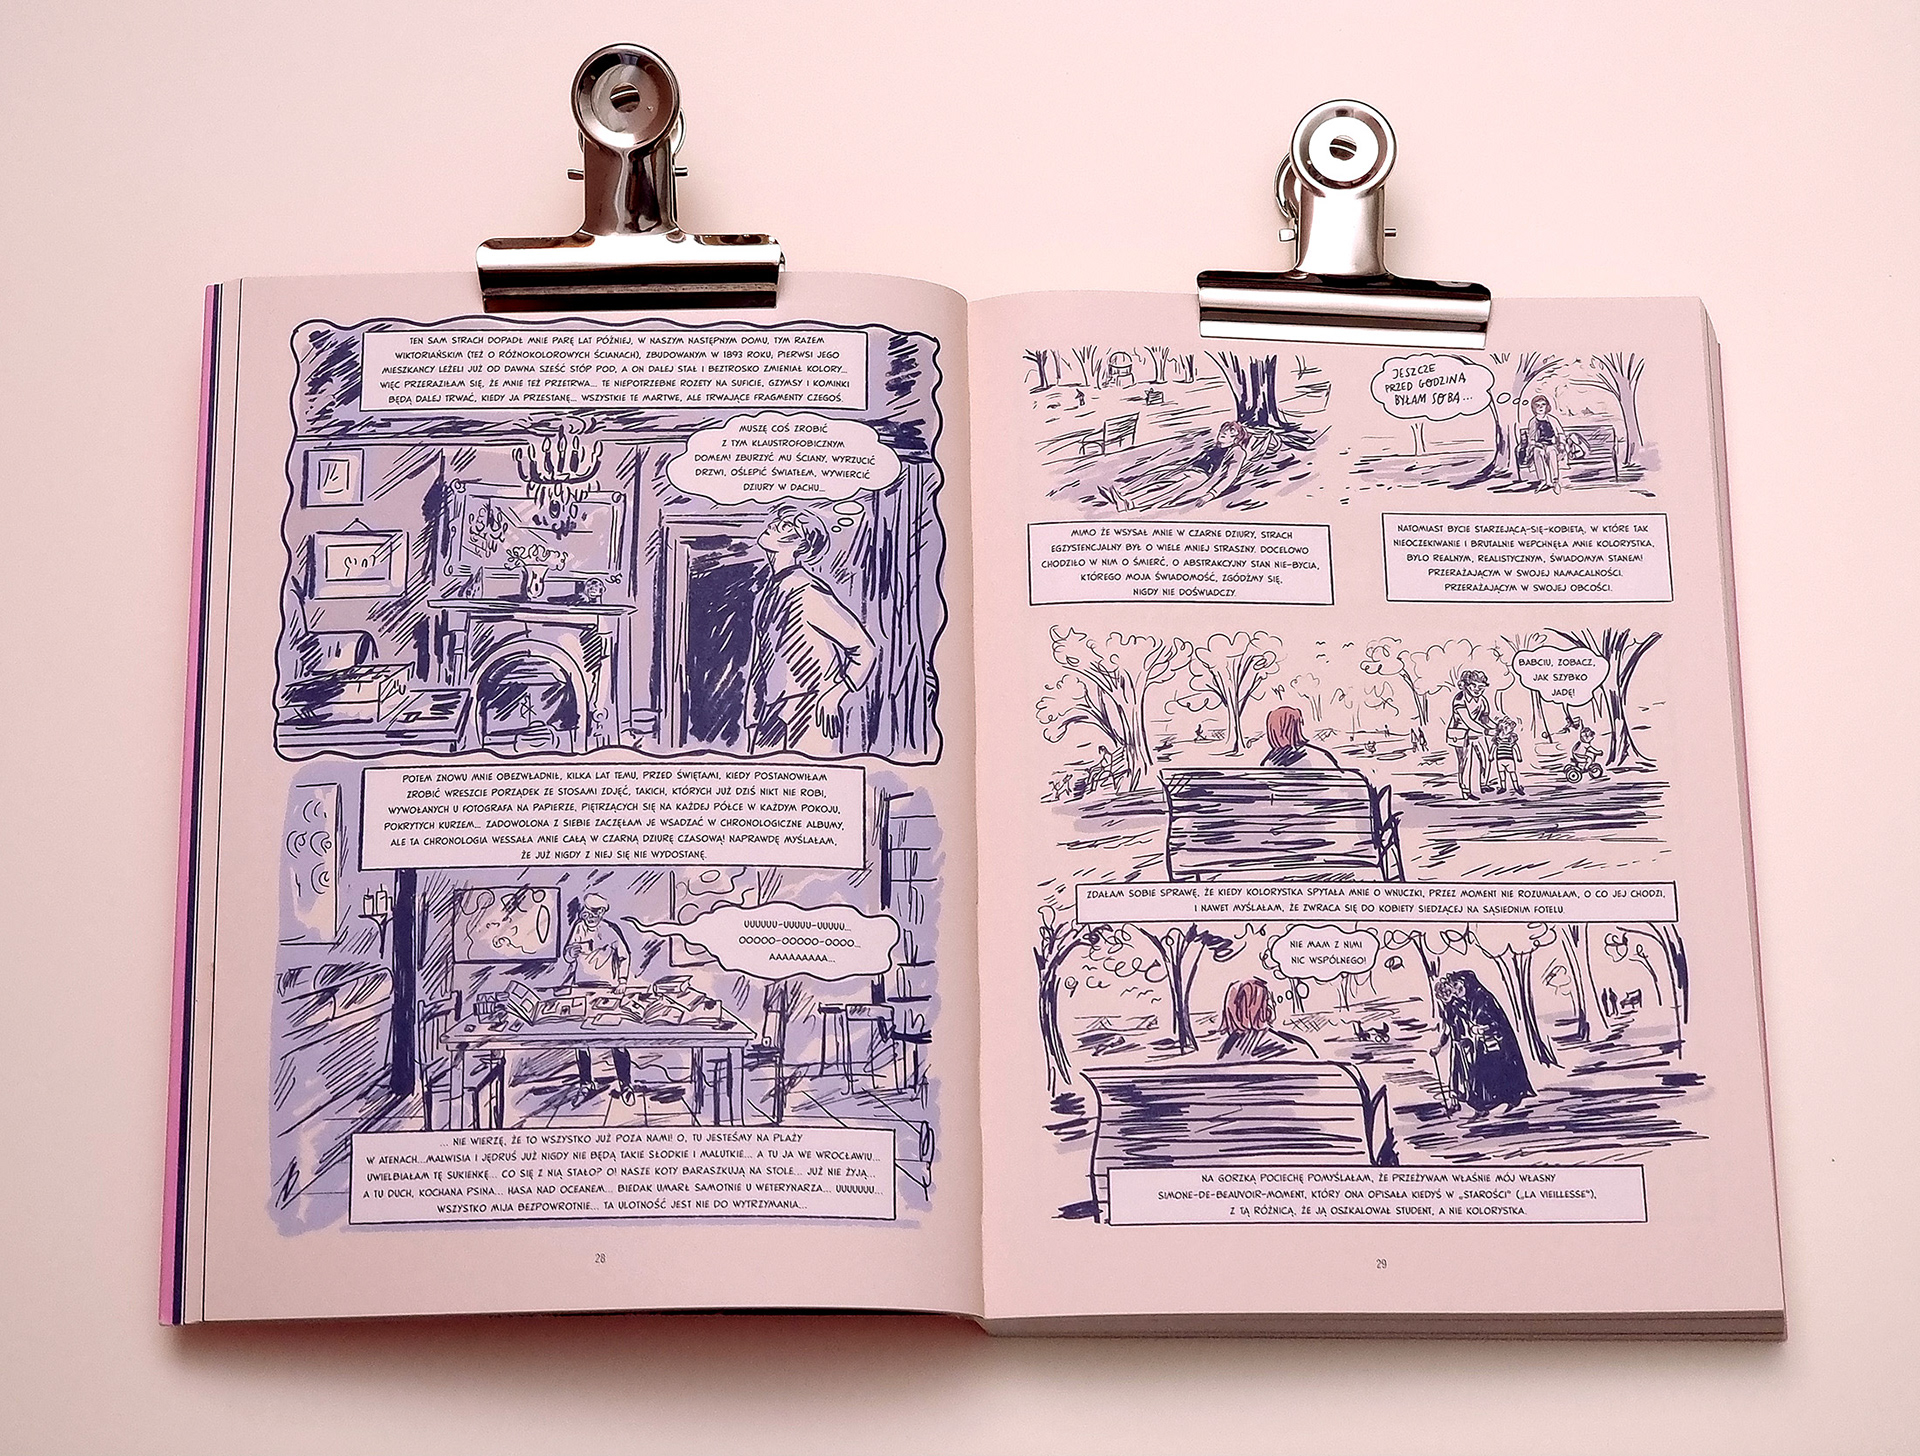 TEN SAM STRACH DOPADŁ MNIE PARĘ LAT PÓŹNIEJ, W NASZYM NASTĘPNYM DOMU, TYM RAZEM
WIKTORIAŃSKIM (TEŻ O RÓŻNOKOLOROWYCH ŚCIANACH), ZBUDOWANYM W 1893 ROKU, PIERWSI JEGO
MIESZKAŃCY LEŻELI JUŻ OD DAWNA SZEŚĆ STÓP POD, A ON DALEJ STAŁ I BEZTROSKO ZMIENIAŁ KOLORY...
WIĘC PRZERAZIŁAM SIĘ, ŻE MNIE TEŻ PRZETRWA... TE NIEPOTRZEBNE ROZETY NA SUFICIE, GZYMSY I KOMINKI
BĘDĄ DALEJ TRWAĆ, KIEDY JA PRZESTANĘ... WSZYSTKIE TE MARTWE, ALE TRWAJĄCE FRAGMENTY CZEGOŚ.
MUSZĘ COŚ ZROBIĆ
Z TYM KLAUSTROFOBICZNYM
DOMEM! ZBURZYĆ MU ŚCIANY, WYRZUCIĆ
DRZWI, OŚLEPIĆ ŚWIATŁEM, WYWIERCIĆ
DZIURY W DACHU...
POTEM ZNOWU MNIE OBEZWŁADNIŁ, KILKA LAT TEMU, PRZED ŚWIĘTAMI, KIEDY POSTANOWIŁAM
ZROBIĆ WRESZCIE PORZĄDEK ZE STOSAMI ZDJĘĆ, TAKICH, KTÓRYCH JUŻ DZIŚ NIKT NIE ROBI,
WYWOŁANYCH U FOTOGRAFA NA PAPIERZE, PIĘTRZĄCYCH SIĘ NA KAŻDEJ PÓŁCE W KAŻDYM POKOJU,
POKRYTYCH KURZEM... ZADOWOLONA Z SIEBIE ZACZĘŁAM JE WSADZAĆ W CHRONOLOGICZNE ALBUMY,
ALE TA CHRONOLOGIA WESSAŁA MNIE CAŁĄ W CZARNĄ DZIURĘ CZASOWĄ! NAPRAWDĘ MYŚLAŁAM,
ŻE JUŻ NIGDY Z NIEJ SIĘ NIE WYDOSTANĘ.
UUUUUU-UUUUU-UUUUU...
OOOOO-OOOOO-OOOO...
AAAAAAAAA...
... NIE WIERZĘ, ŻE TO WSZYSTKO JUŻ POZA NAMI! O, TU JESTEŚMY NA PLAŻY
W ATENACH...MALWISIA I JĘDRUŚ JUŻ NIGDY NIE BĘDĄ TAKIE SŁODKIE I MALUTKIE... A TU JA WE WROCŁAWIU...
UWIELBIAŁAM TĘ SUKIENKĘ... CO SIĘ Z NIĄ STAŁO? O! NASZE KOTY BARASZKUJĄ NA STOLE... JUŻ NIE ŻYJĄ...
A TU DUCH, KOCHANA PSINA... HASA NAD OCEANEM... BIEDAK UMARŁ SAMOTNIE U WETERYNARZA... UUUUUUU...
WSZYSTKO MIJA BEZPOWROTNIE... TA ULOTNOŚĆ JEST NIE DO WYTRZYMANIA...
28
JESZCZE
PRZED GODZINĄ
BYŁAM SOBĄ...
MIMO ŻE WSYSAŁ MNIE W CZARNE DZIURY, STRACH
EGZYSTENCJALNY BYŁ O WIELE MNIEJ STRASZNY. DOCELOWO
CHODZIŁO W NIM O ŚMIERĆ, O ABSTRAKCYJNY STAN NIE-BYCIA,
KTÓREGO MOJA ŚWIADOMOŚĆ, ZGÓDŹMY SIĘ,
NIGDY NIE DOŚWIADCZY.
NATOMIAST BYCIE STARZEJĄCĄ-SIĘ-KOBIETĄ, W KTÓRE TAK
NIEOCZEKIWANIE I BRUTALNIE WEPCHNĘŁA MNIE KOLORYSTKA,
BYŁO REALNYM, REALISTYCZNYM, ŚWIADOMYM STANEM!
PRZERAŻAJĄCYM W SWOJEJ NAMACALNOŚCI.
PRZERAŻAJĄCYM W SWOJEJ OBCOŚCI.
BABCIU, ZOBACZ,
JAK SZYBKO
JADĘ!
ZDAŁAM SOBIE SPRAWĘ, ŻE KIEDY KOLORYSTKA SPYTAŁA MNIE O WNUCZKI, PRZEZ MOMENT NIE ROZUMIAŁAM, O CO JEJ CHODZI,
I NAWET MYŚLAŁAM, ŻE ZWRACA SIĘ DO KOBIETY SIEDZĄCEJ NA SĄSIEDNIM FOTELU.
NIE MAM Z NIMI
NIC WSPÓLNEGO!
NA GORZKĄ POCIECHĘ POMYŚLAŁAM, ŻE PRZEŻYWAM WŁAŚNIE MÓJ WŁASNY
SIMONE-DE-BEAUVOIR-MOMENT, KTÓRY ONA OPISAŁA KIEDYŚ W „STAROŚCI" („LA VIEILLESSE"),
Z TĄ RÓŻNICĄ, ŻE JĄ OSZKALOWAŁ STUDENT, A NIE KOLORYSTKA.
29